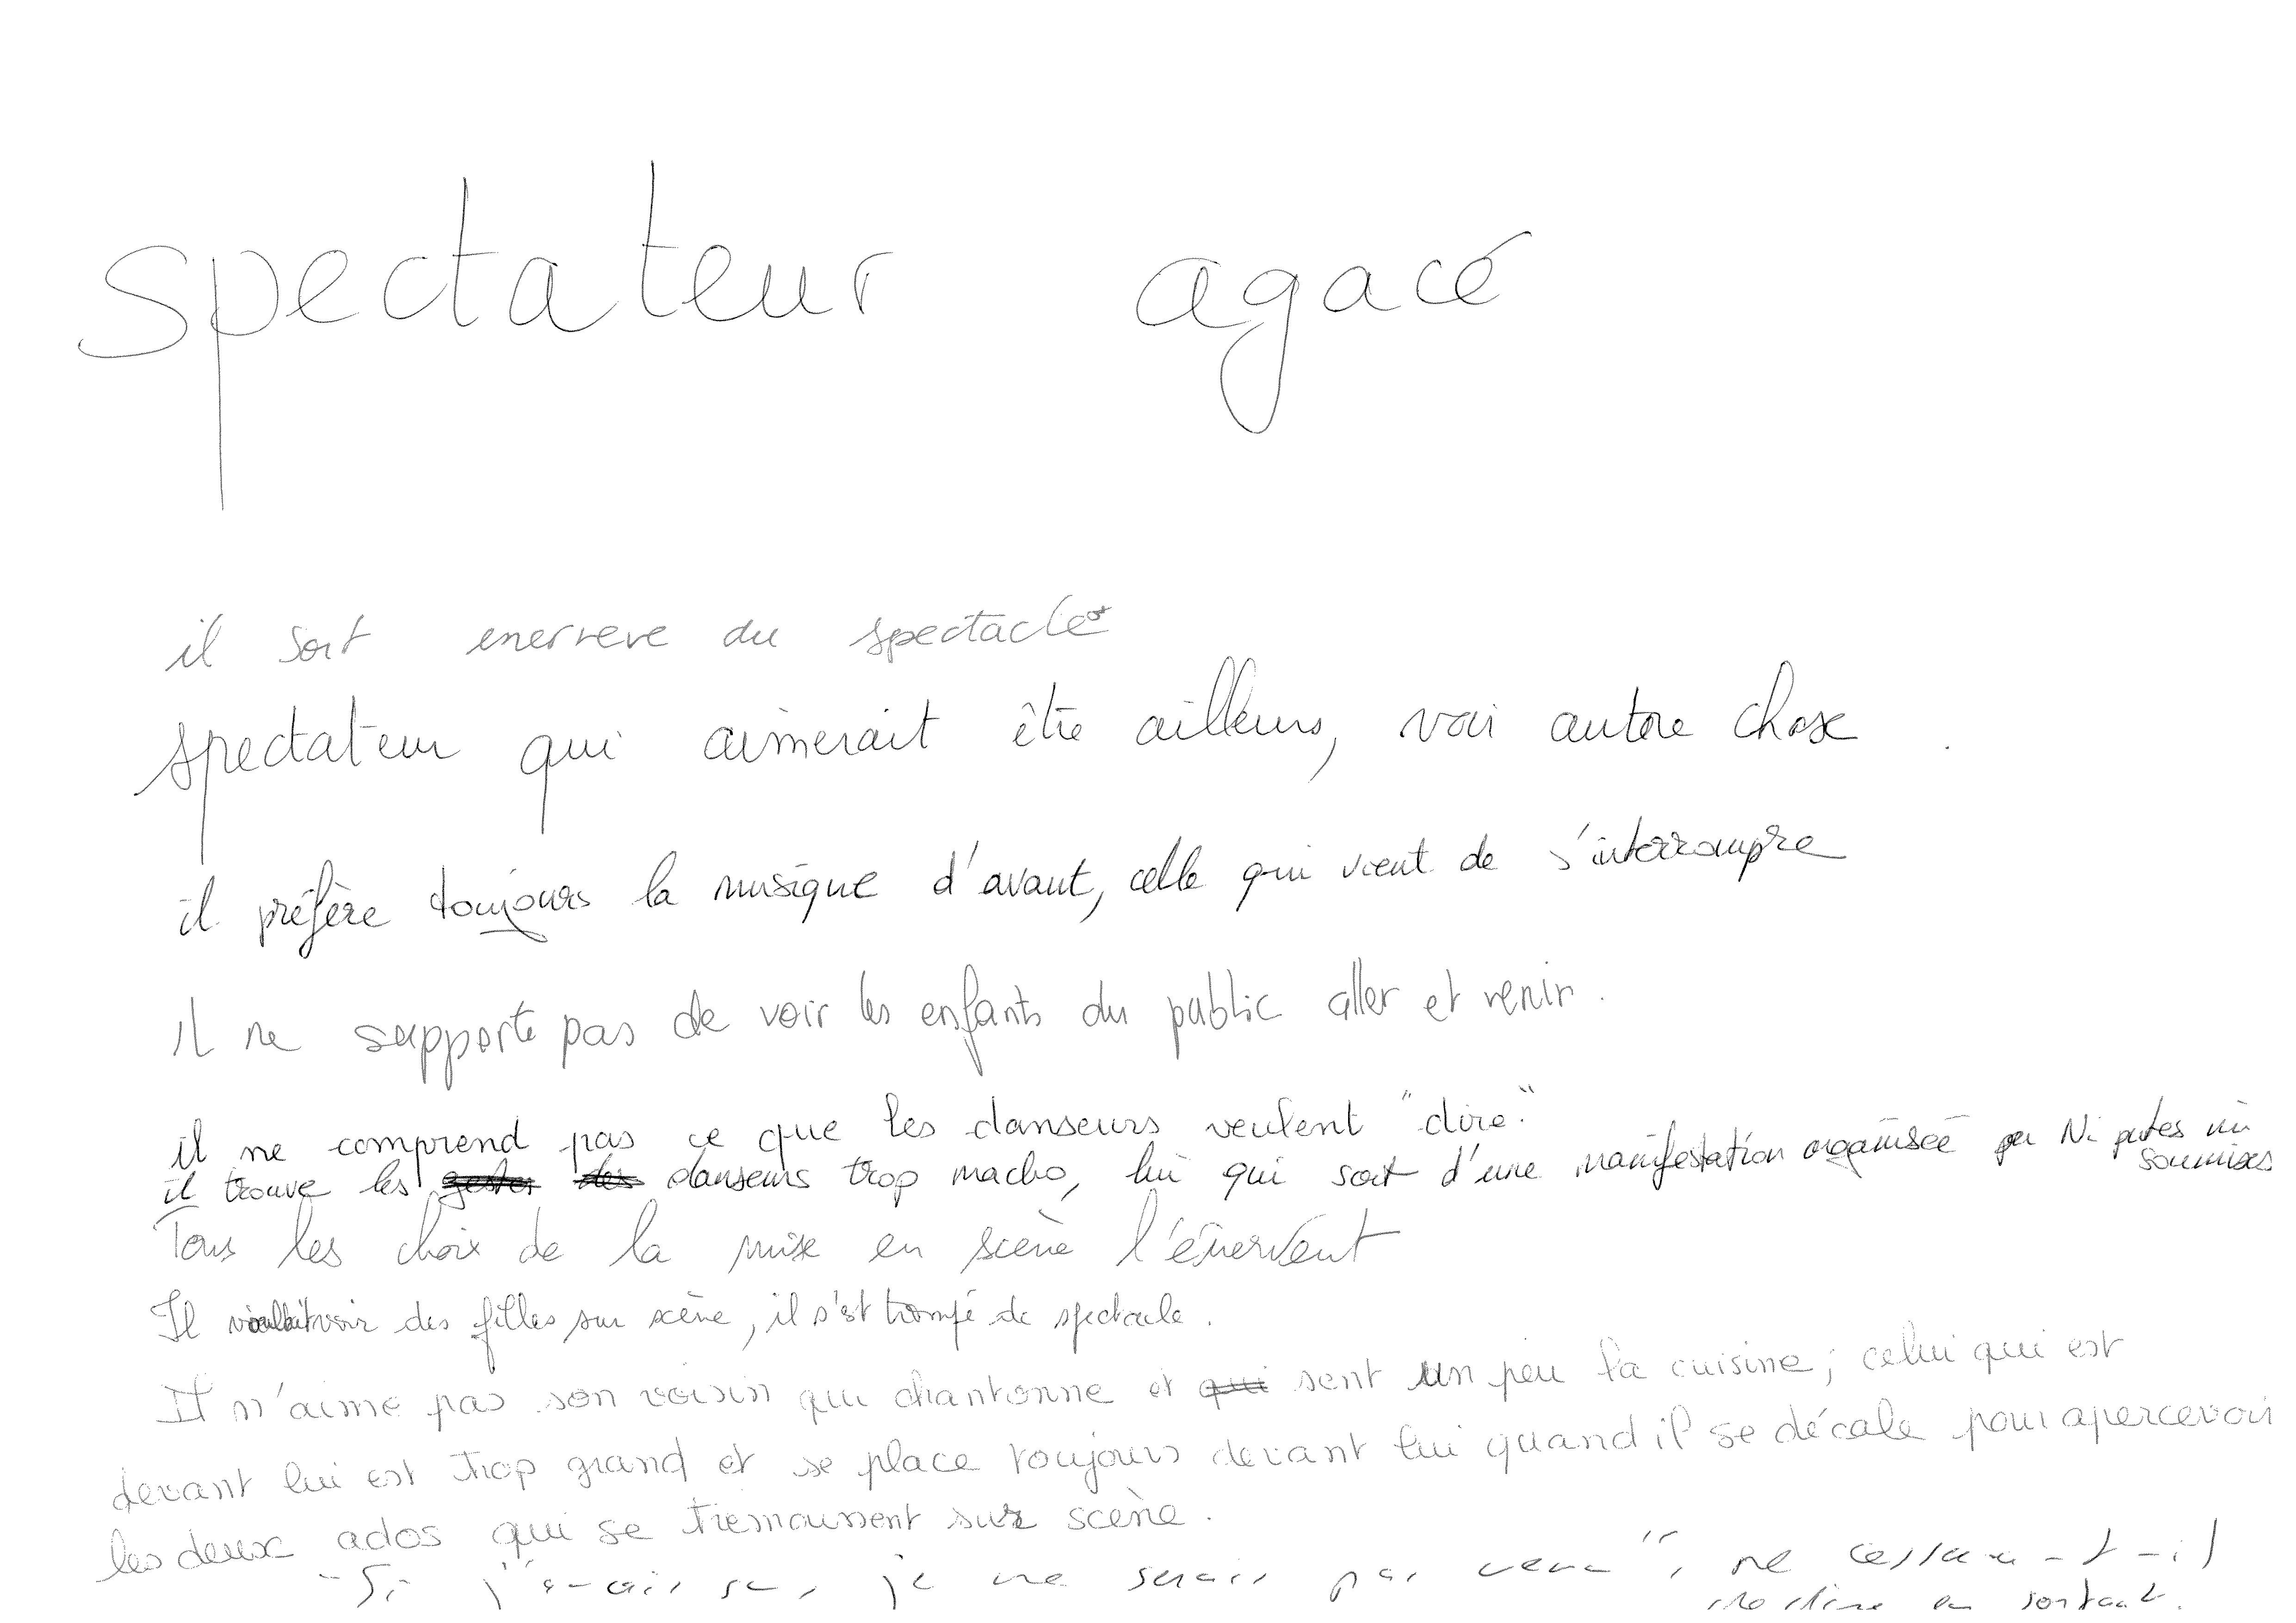 spectateur agacé
il sort enerreve du spectacle
spectateur qui aimerait être ailleurs, voir autre chose.
il préfère toujours la musique d'avant, celle qui vient de s'interrompre
Il ne supporte pas de voir les enfants du public aller et venir.
il ne comprend pas ce que les danseurs veulent "dire."
il trouve les gestes des danseurs trop macho, lui qui sort d'une manifestation organisée par Ni putes ni soumises
Tous les choix de la mise en scène l'énervent
Il voulait voir des filles sur scène, il s'est trompé de spectacle.
Il n'aime pas son voisin qui chantonne et qui sent un peu la cuisine; celui qui est
devant lui est trop grand et se place toujours devant lui quand il se décale pour apercevoir
les deux ados qui se trémoussent sur scène.
"Si j'avais su, je ne serais pas venu", ne cessera-t-il
de dire en sortant.